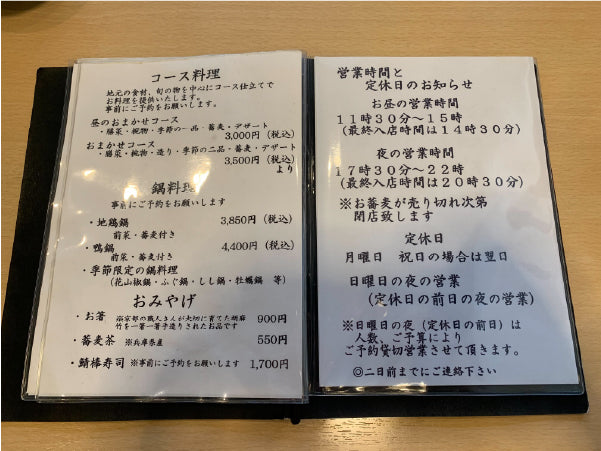 コース料理
地元の食材、旬の物を中心にコース仕立てで
お料理を提供いたします。
事前にご予約をお願いします。
昼のおまかせコース
・勝菜・椀物・季節の一品・蕎麦・デザート
3,000円(税込)
おまかせコース
・勝菜・椀物・造り・季節の二品・蕎麦・デザート
3,500円(税込)
より
鍋料理
事前にご予約をお願いします
・地鶏鍋 3,850円(税込)
前菜・蕎麦付き
・鴨鍋 4,400円(税込)
前菜・蕎麦付き
・季節限定の鍋料理
(花山椒鍋・ふぐ鍋・しし鍋・牡蠣鍋 等)
おみやげ
・お箸 ※京都の職人さんが大切に育てた胡麻 900円
竹を一箸一箸手造りされたお品です
・蕎麦茶 ※兵庫県産 550円
・鯖棒寿司 ※事前にご予約をお願いします 1,700円
営業時間と
定休日のお知らせ
お昼の営業時間
11時30分~15時
(最終入店時間は14時30分)
夜の営業時間
17時30分~22時
(最終入店時間は20時30分)
※お蕎麦が売り切れ次第
閉店致します
定休日
月曜日 祝日の場合は翌日
日曜日の夜の営業
(定休日の前日の夜の営業)
※日曜日の夜(定休日の前日)は
人数、ご予算により
ご予約貸切営業させて頂きます。
◎二日前までにご連絡下さい